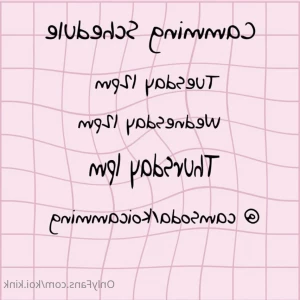 Camming Schedule
Tuesday 12pm
Wednesday 12pm
Thursday 1pm
@ camsoda/koicamming
OnlyFans.com/koi.kink